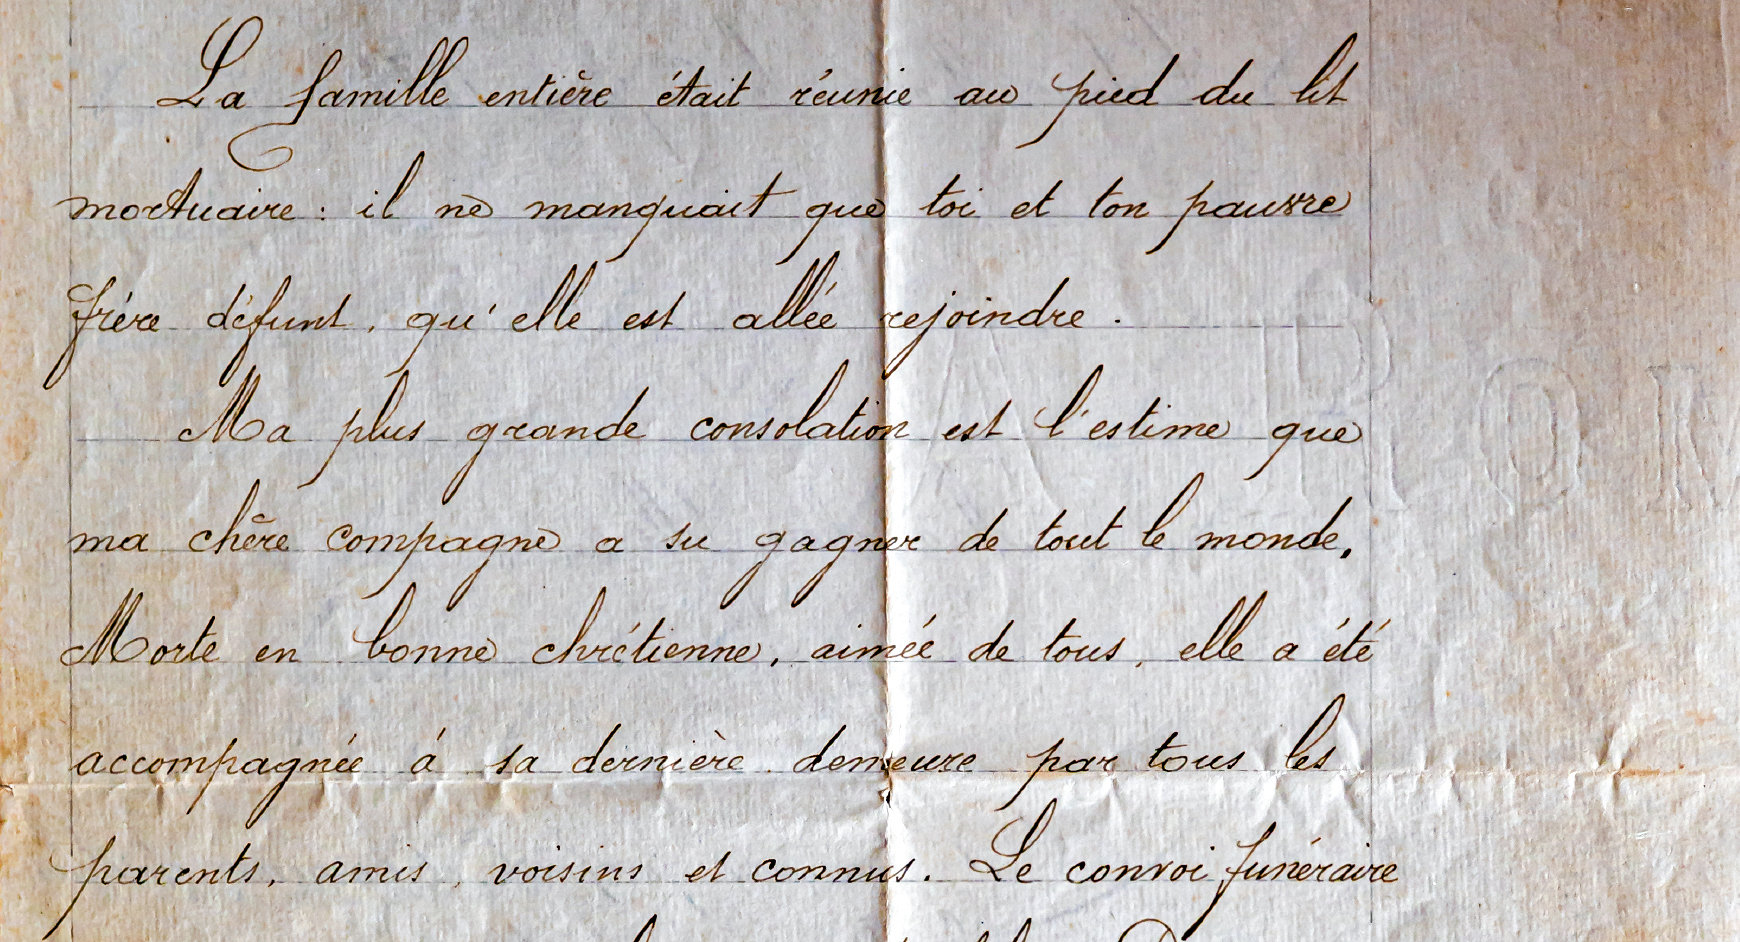 La famille entière était réunie au pied du lit
mortuaire : il ne manquait que toi et ton pauvre
frère défunt, qu'elle est allée rejoindre.
Ma plus grande consolation est l'estime que
ma chère compagne a su gagner de tout le monde.
Morte en bonne chrétienne, aimée de tous, elle a été
accompagnée á sa dernière demeure par tous les
parents, amis, voisins et connus. Le convoi funéraire